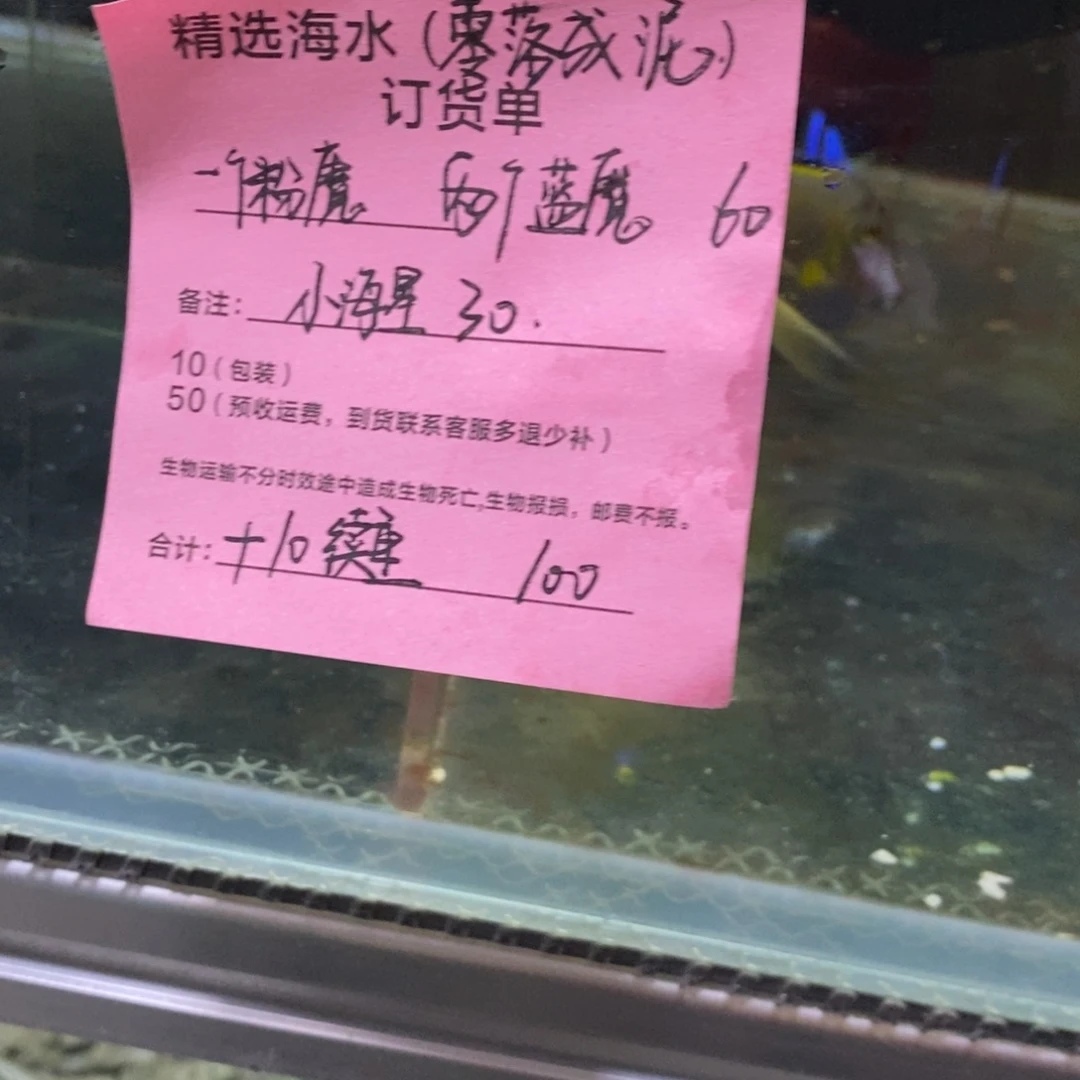 精选海水(零落成泥)
订货单
一个粉魔 两个蓝魔 60
备注: 小海星 30.
10(包装)
50(预收运费，到货联系客服多退少补)
生物运输不分时效途中造成生物死亡,生物报损，邮费不报。
合计: +10 100